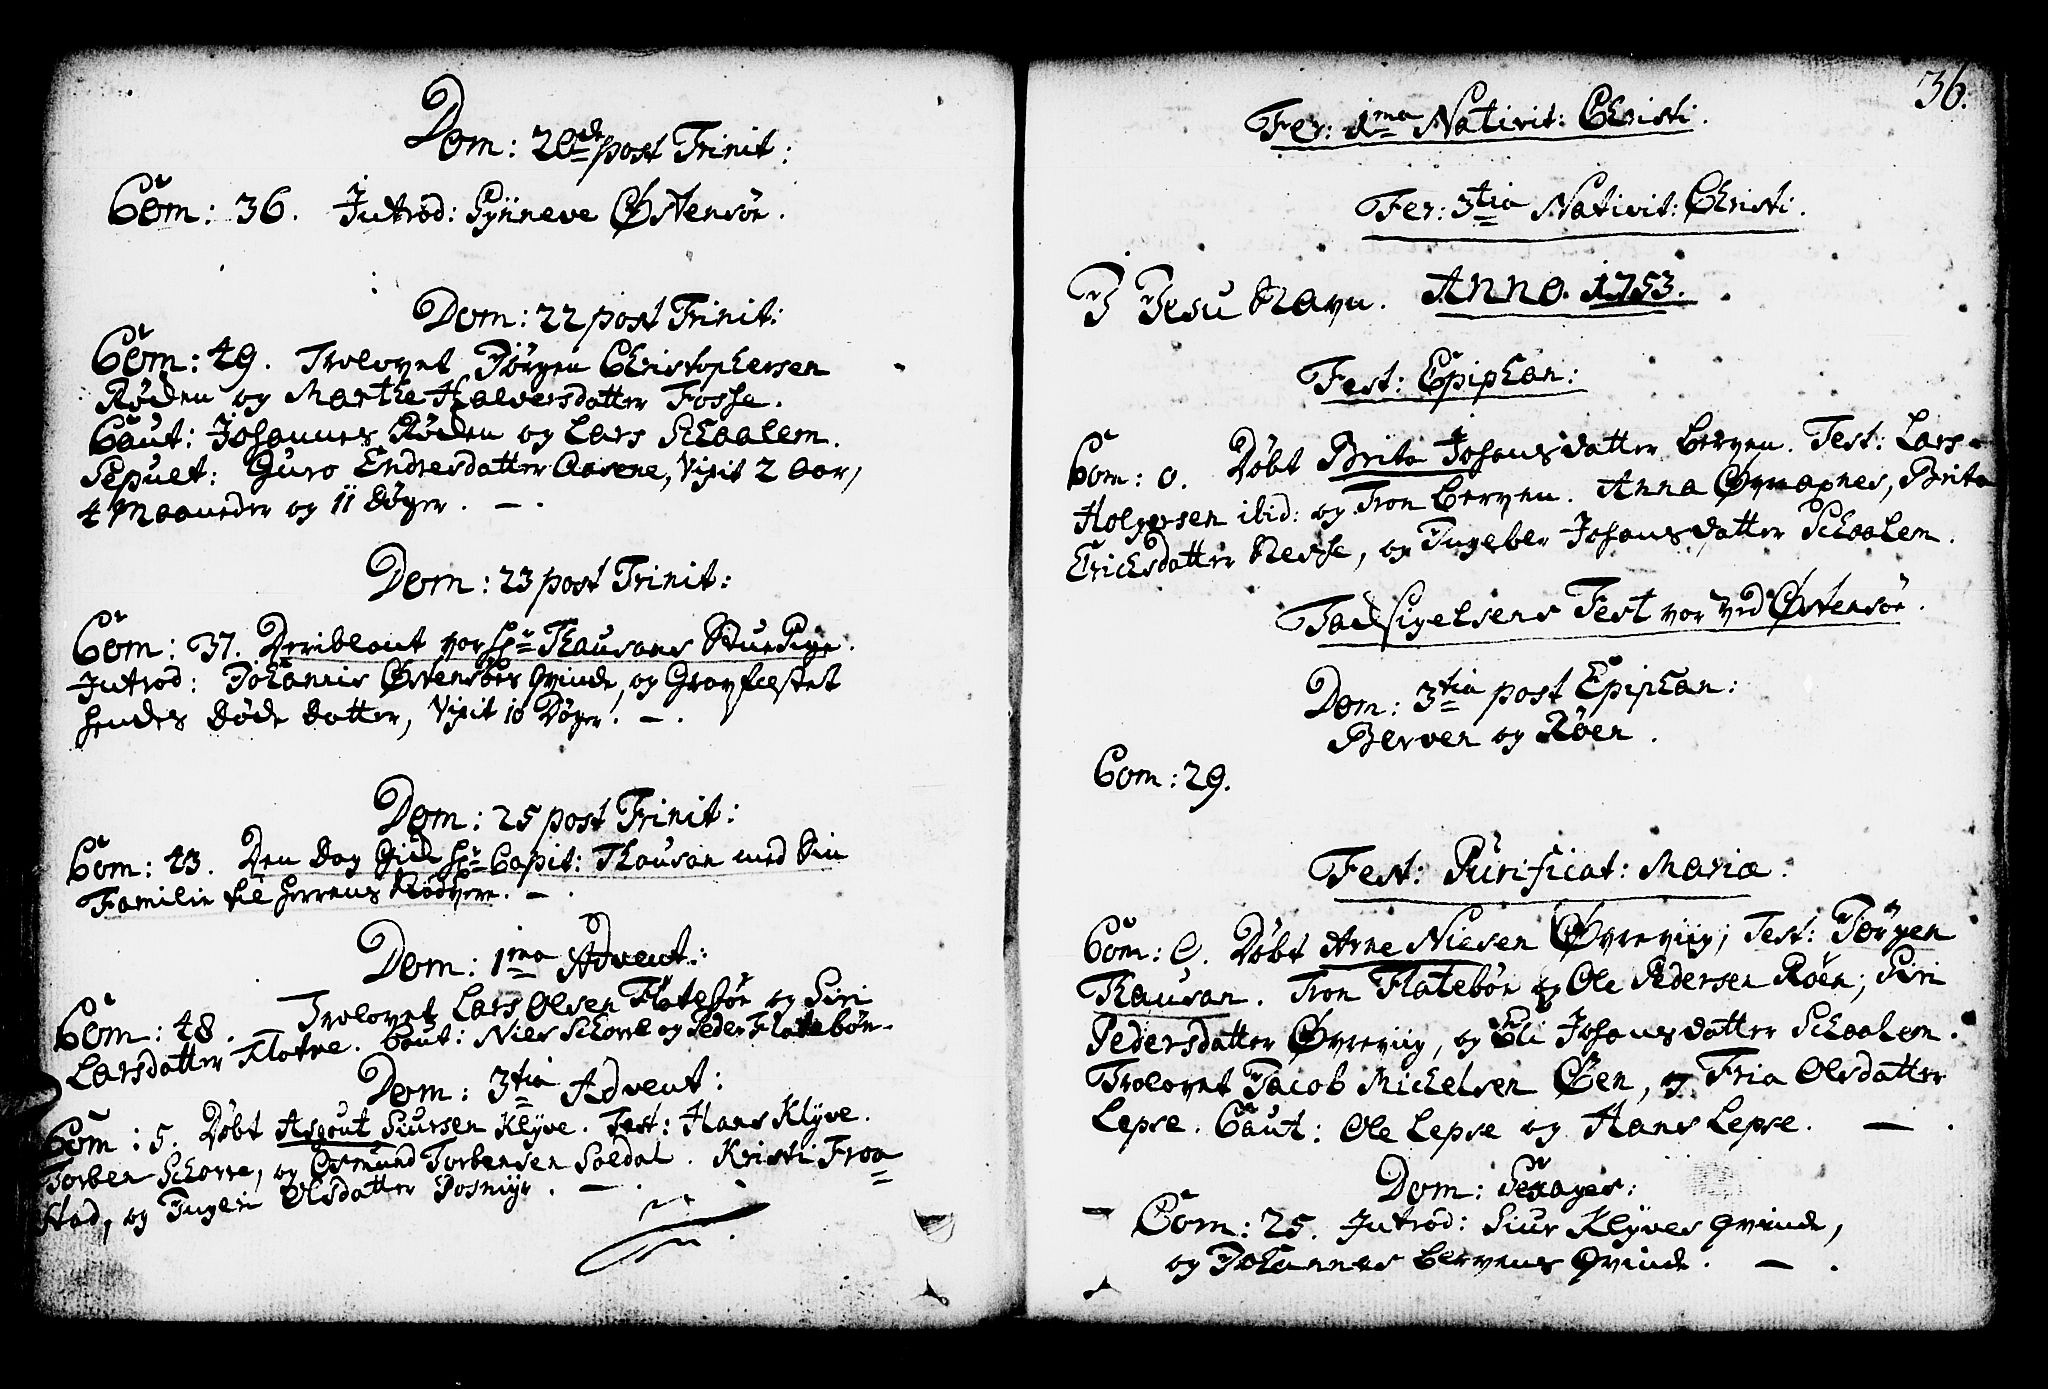 Dom: 20de post Trinit:
Com: 36. Introd: Synneve Østensøe.
Dom: 22 post Trinit:
Com: 49. Trolovet Jørgen Christophersen
Røden og Marthe Halversdatter Fosse.
Caut: Johannes Røden og Lars Schaalem.
Sepult: Guro Endresdatter Aasene, Vixit 2 Aar,
4 Maaneder og 11 Døger. — .
Dom: 23 post Trinit:
Com: 37. Deriblant vor Hr Thausans StuePige.
Introd: Johannis Østensøes Qvinde, og Gravfæstet
hendes døde datter, Vixit 10 Døger. — .
Dom: 25 post Trinit:
Com: 43. Den dag Gick Hr Capit: Thausan med Sin
Familie til Herrens Nadvere. — .
Dom: 1ma Advent:
Com: 48. — Trolovet Lars Olsen Flatebøe og Siri
Larsdatter Flotve. Caut: Niels Schorre og Peder Flatebøe.
Dom: 3tia Advent:
Com: 5. Døbt Asgout Siursen Klyve. Test: Hans Klyve.
Torben Schorre, og Osmund Torbensen Soldal. Kristi Froa=
stad, og Ingeri Olsdatter Posmyr. — .
36.
Fer: 1ma Nativit: Christi.
Fer: 3tia Nativit: Christi.
I Jesu Navn. Anno. 1753.
Fest: Epiphan:
Com: 0. Døbt Brita Johansdatter Berven. Test: Lars
Holgersen ibid: og Tron Berven. Anna Brita
Ericksdatter Nesse, og Ingebor Johansdatter Schaalem.
Tacksigelsens Fest vor ved Østensøe.
Dom: 3tia post Epiphan:
Berven og Røen.
Com: 29.
Fest: Purificat: Mariæ:
Com: 0. Døbt Arne Nielsen Øvreviig; Test: Jørgen
Thausan. Tron Flatebøe og Ole Pedersen Røen; Siri
Pedersdatter Øvreviig, og Eli Johansdatter Schaalem.
Trolovet Jacob Michelsen Øen, og Fria Olsdatter
Lepse. Caut: Ole Lepse og Hans Lepse. — .
Dom: Sexages:
Com: 25. Introd: Siur Klyves Qvinde,
og Johannes Bervens Qvinde. — .